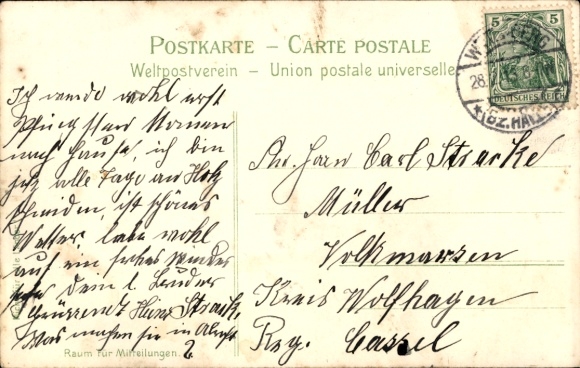 POSTKARTE – CARTE POSTALE
Weltpostverein – Union postale universelle
5 5
DEUTSCHES REICH
28.
Ich werde wohl erst
Pfingsten kommen
nach Hause, ich bin
jetz alle Tage am Holz
schneiden, ist schönes
Wetter, lebe wohl
auf ein frohes Wieder
sehn dein l. Bruder
Heinr. Stracke,
Was machen sie in
?
Raum für Mitteilungen.
An. Herrn Carl Stracke
Müller
Volkmarsen
Kreis Wolfhagen
Reg. Cassel